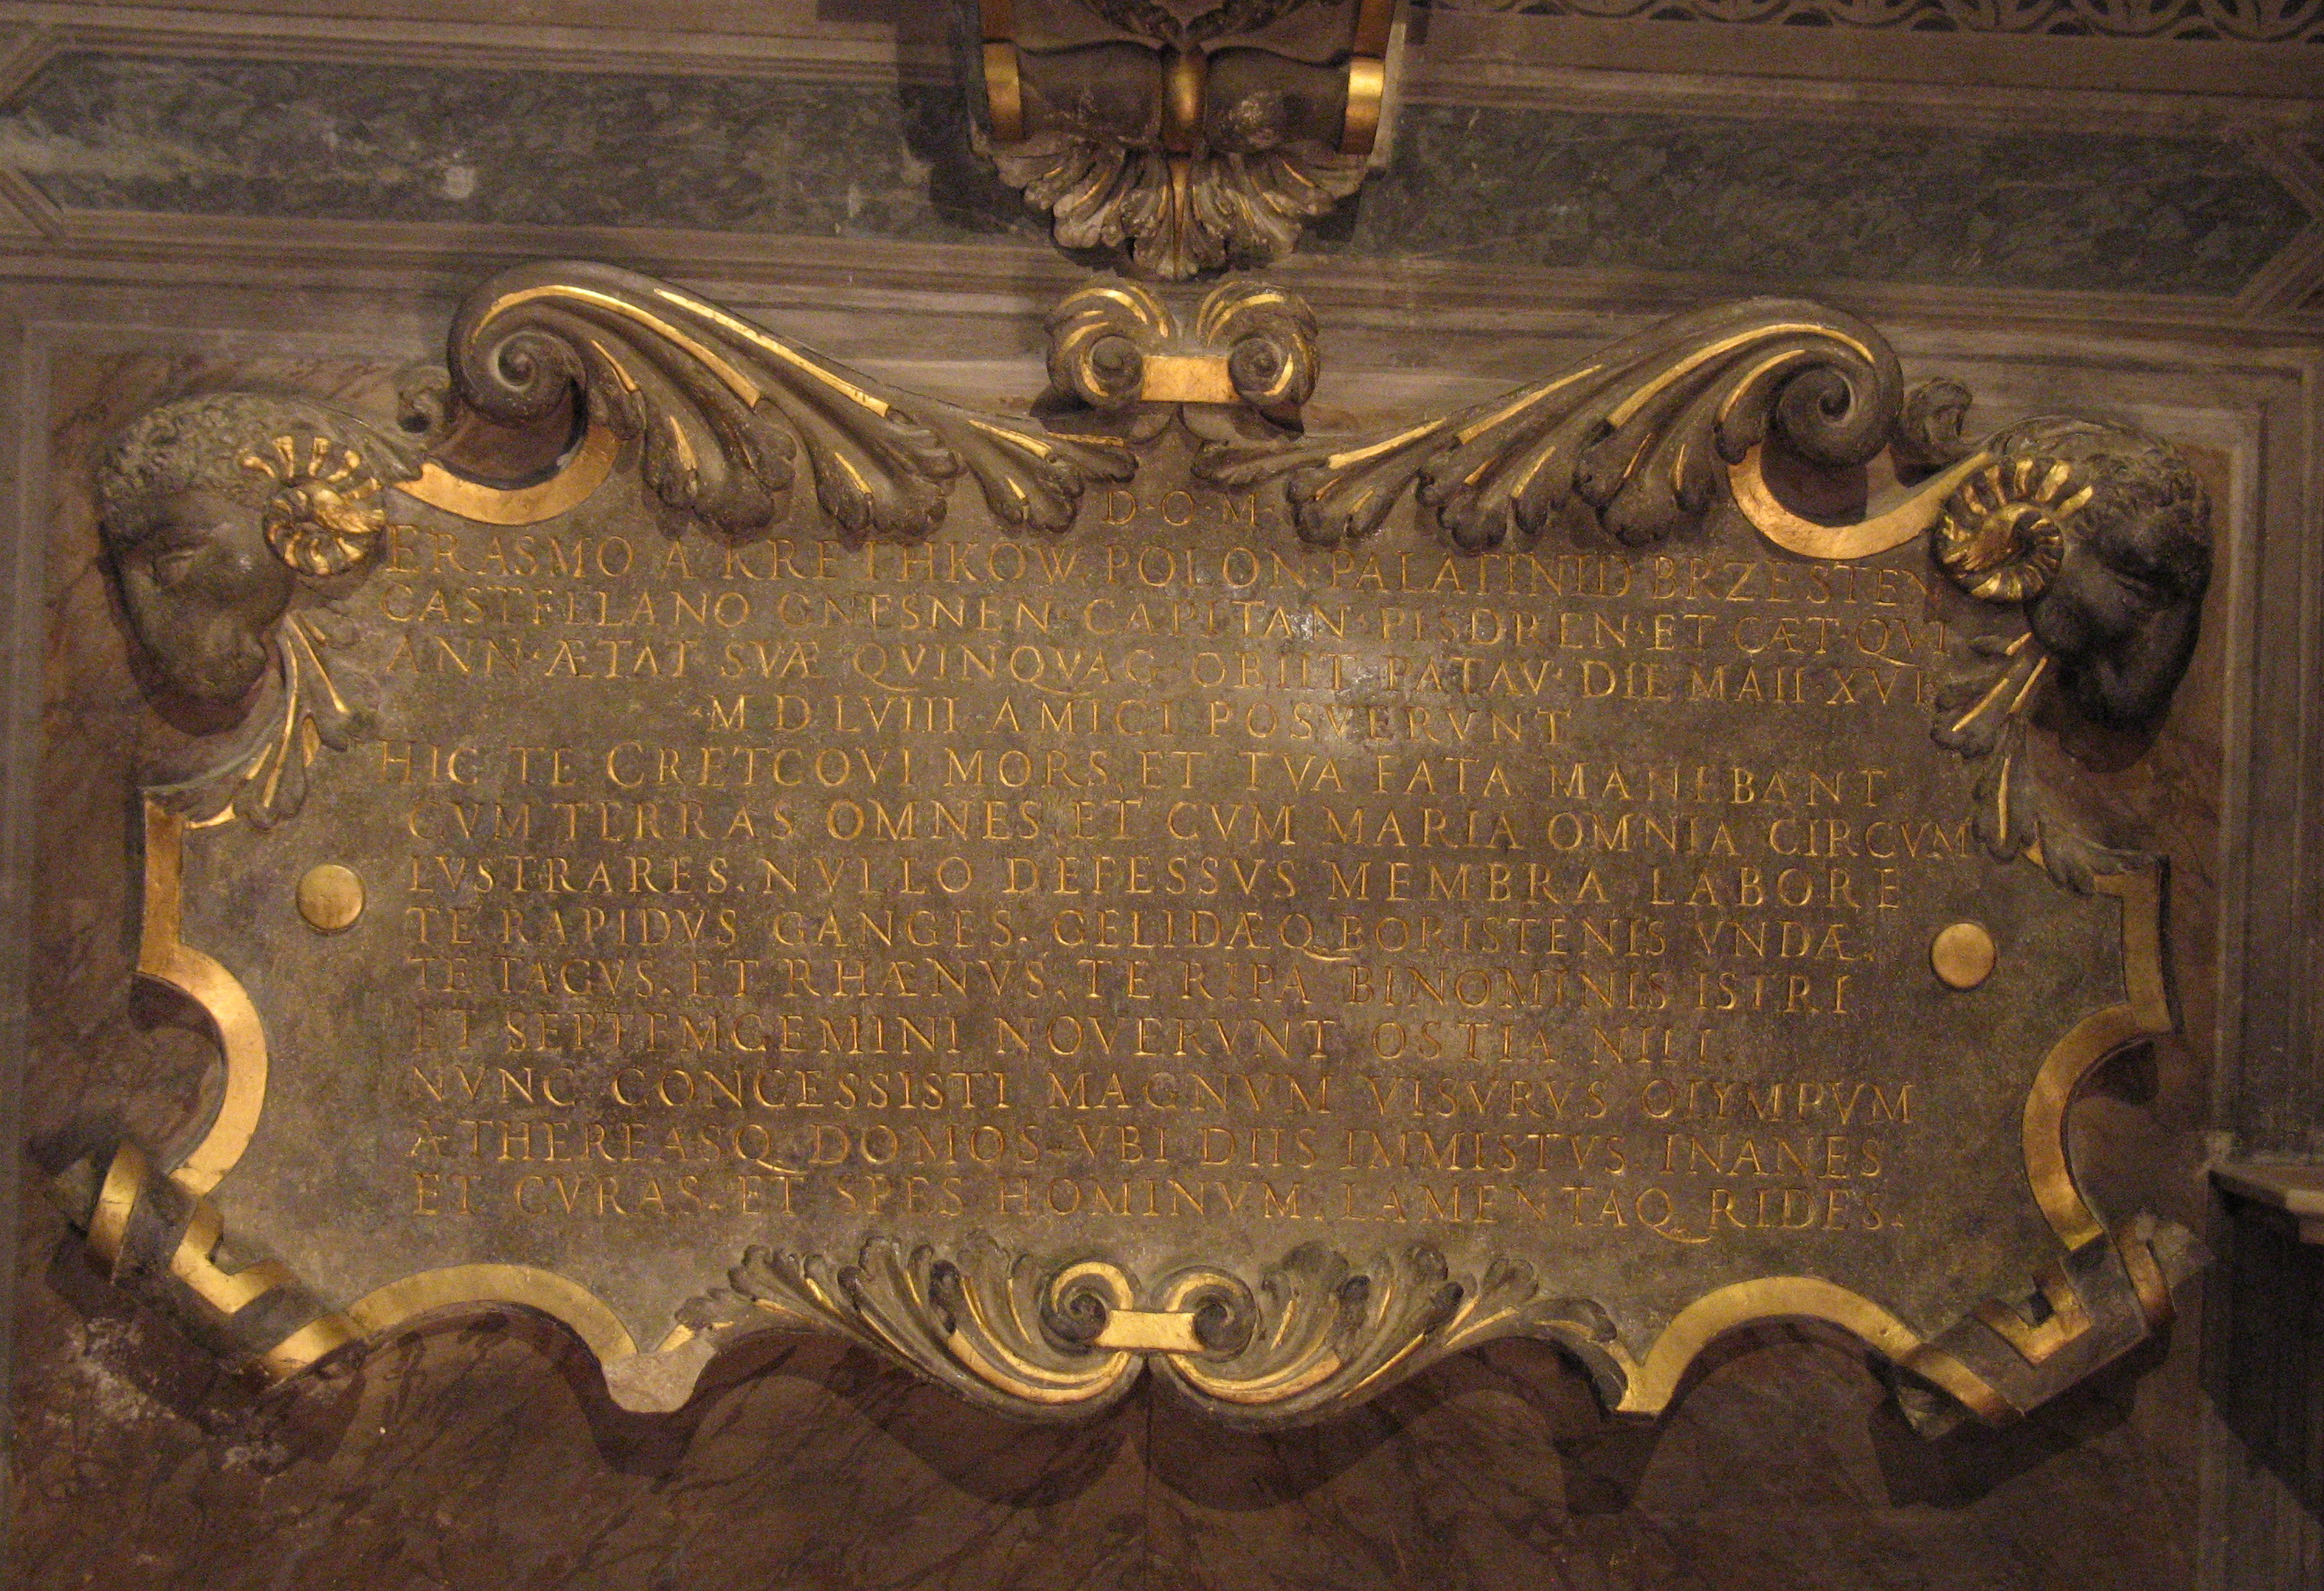 D·O·M·
ERASMO A KRETHKOW POLON·PALATINID BRZESTEN
CASTELLANO GNESNEN·CAPITAN·PISDREN·ET CÆT·QVI
ANN·ÆTAT SVÆ QVINQVAG·OBIIT PATAV·DIE MAII·XVI
·M D LVIII AMICI POSVERVNT
HIC TE CRETCOVI MORS, ET TVA FATA MANEBANT
CVM TERRAS OMNES, ET CVM MARIA OMNIA CIRCVM
LVSTRARES. NVLLO DEFESSVS MEMBRA LABORE
TE RAPIDVS GANGES. GELIDÆQ BORISTENIS VNDÆ.
TE TAGVS. ET RHÆNVS. TE RIPA BINOMINIS ISTRI
ET SEPTEMGEMINI NOVERVNT OSTIA NILI.
NVNC CONCESSISTI MAGNVM VISVRVS OLYMPVM
ÆTHEREASQ DOMOS VBI DIIS IMMISTVS INANES
ET CVRAS. ET SPES HOMINVM. LAMENTAQ RIDES.